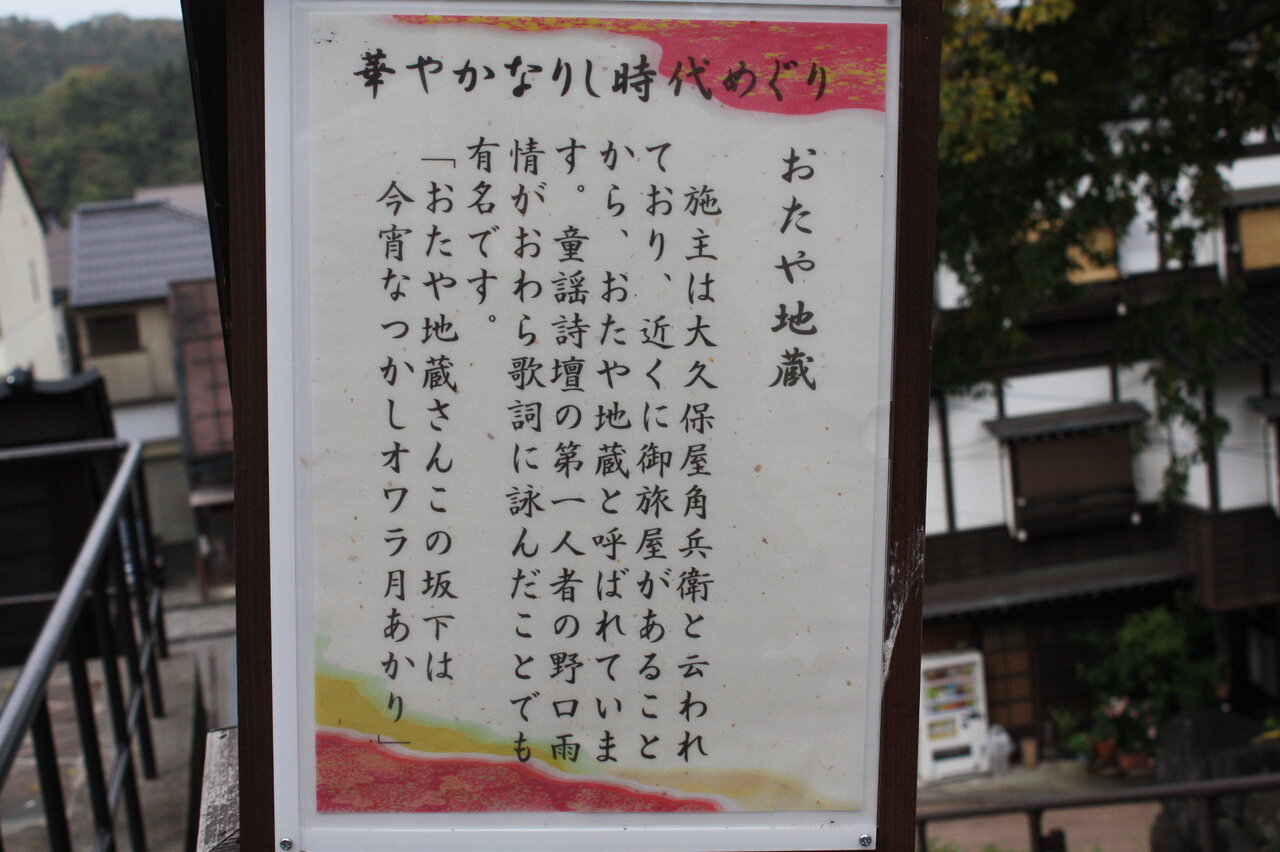 華やかなりし時代めぐり
おたや地蔵
施主は大久保屋角兵衛と云われ
ており、近くに御旅屋があること
から、おたや地蔵と呼ばれていま
す。童謡詩壇の第一人者の野口雨
情がおわら歌詞に詠んだことでも
有名です。
「おたや地蔵さんこの坂下は
今宵なつかしオワラ月あかり」